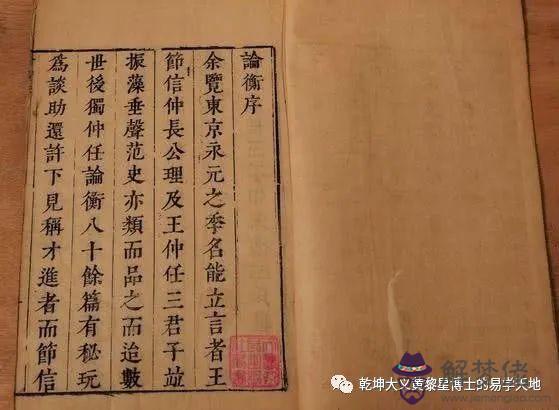 論衡序
余覽東京永元之季名能立言者王
節信仲長公理及王仲任三君子並
振藻垂聲范史亦類而品之而迨數
世後獨仲任論衡八十餘篇有秘玩
爲談助還許下見稱才進者而節信
乾坤大义黄黎星博士的易学天地
解梦佬